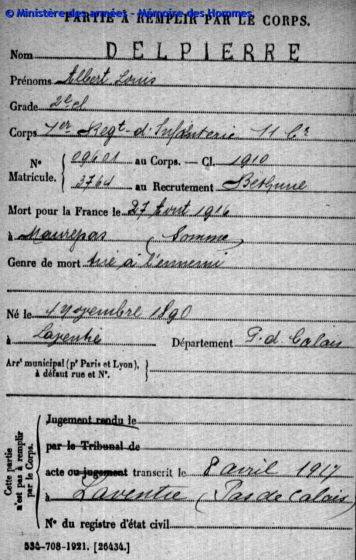 © Ministère des armées - Mémoire des Hommes
PARTIE À REMPLIR PAR LE CORPS.
Nom DELPIERRE
Prénoms Albert Louis
Grade 2e cl
Corps 1er Regt d'Infanterie 11 Cie
N° Matricule. { 09601 au Corps. — Cl. 1910
3764 au Recrutement Béthune
Mort pour la France le 27 Aout 1916
à Maurepas (Somme)
Genre de mort tué à l'ennemi
Né le 1 Novembre 1890
à Laventie Département P. d. Calais
Arrt municipal (pr Paris et Lyon), à défaut rue et N°. }
Cette partie n'est pas à remplir par le Corps.
Jugement rendu le
par le Tribunal de
acte ou jugement transcrit le 8 avril 1917
à Laventie (Pas de Calais)
N° du registre d'état civil
534-708-1921. [26434.]